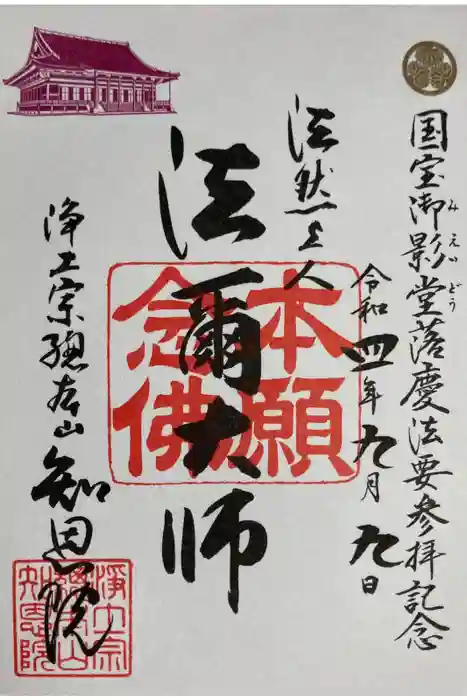 国宝御影堂落慶法要参拝記念
みえいどう
令和四年九月九日
法然上人
法爾大師
本願
念佛
浄土宗總本山
知恩院
淨土宗
總本山
知恩院